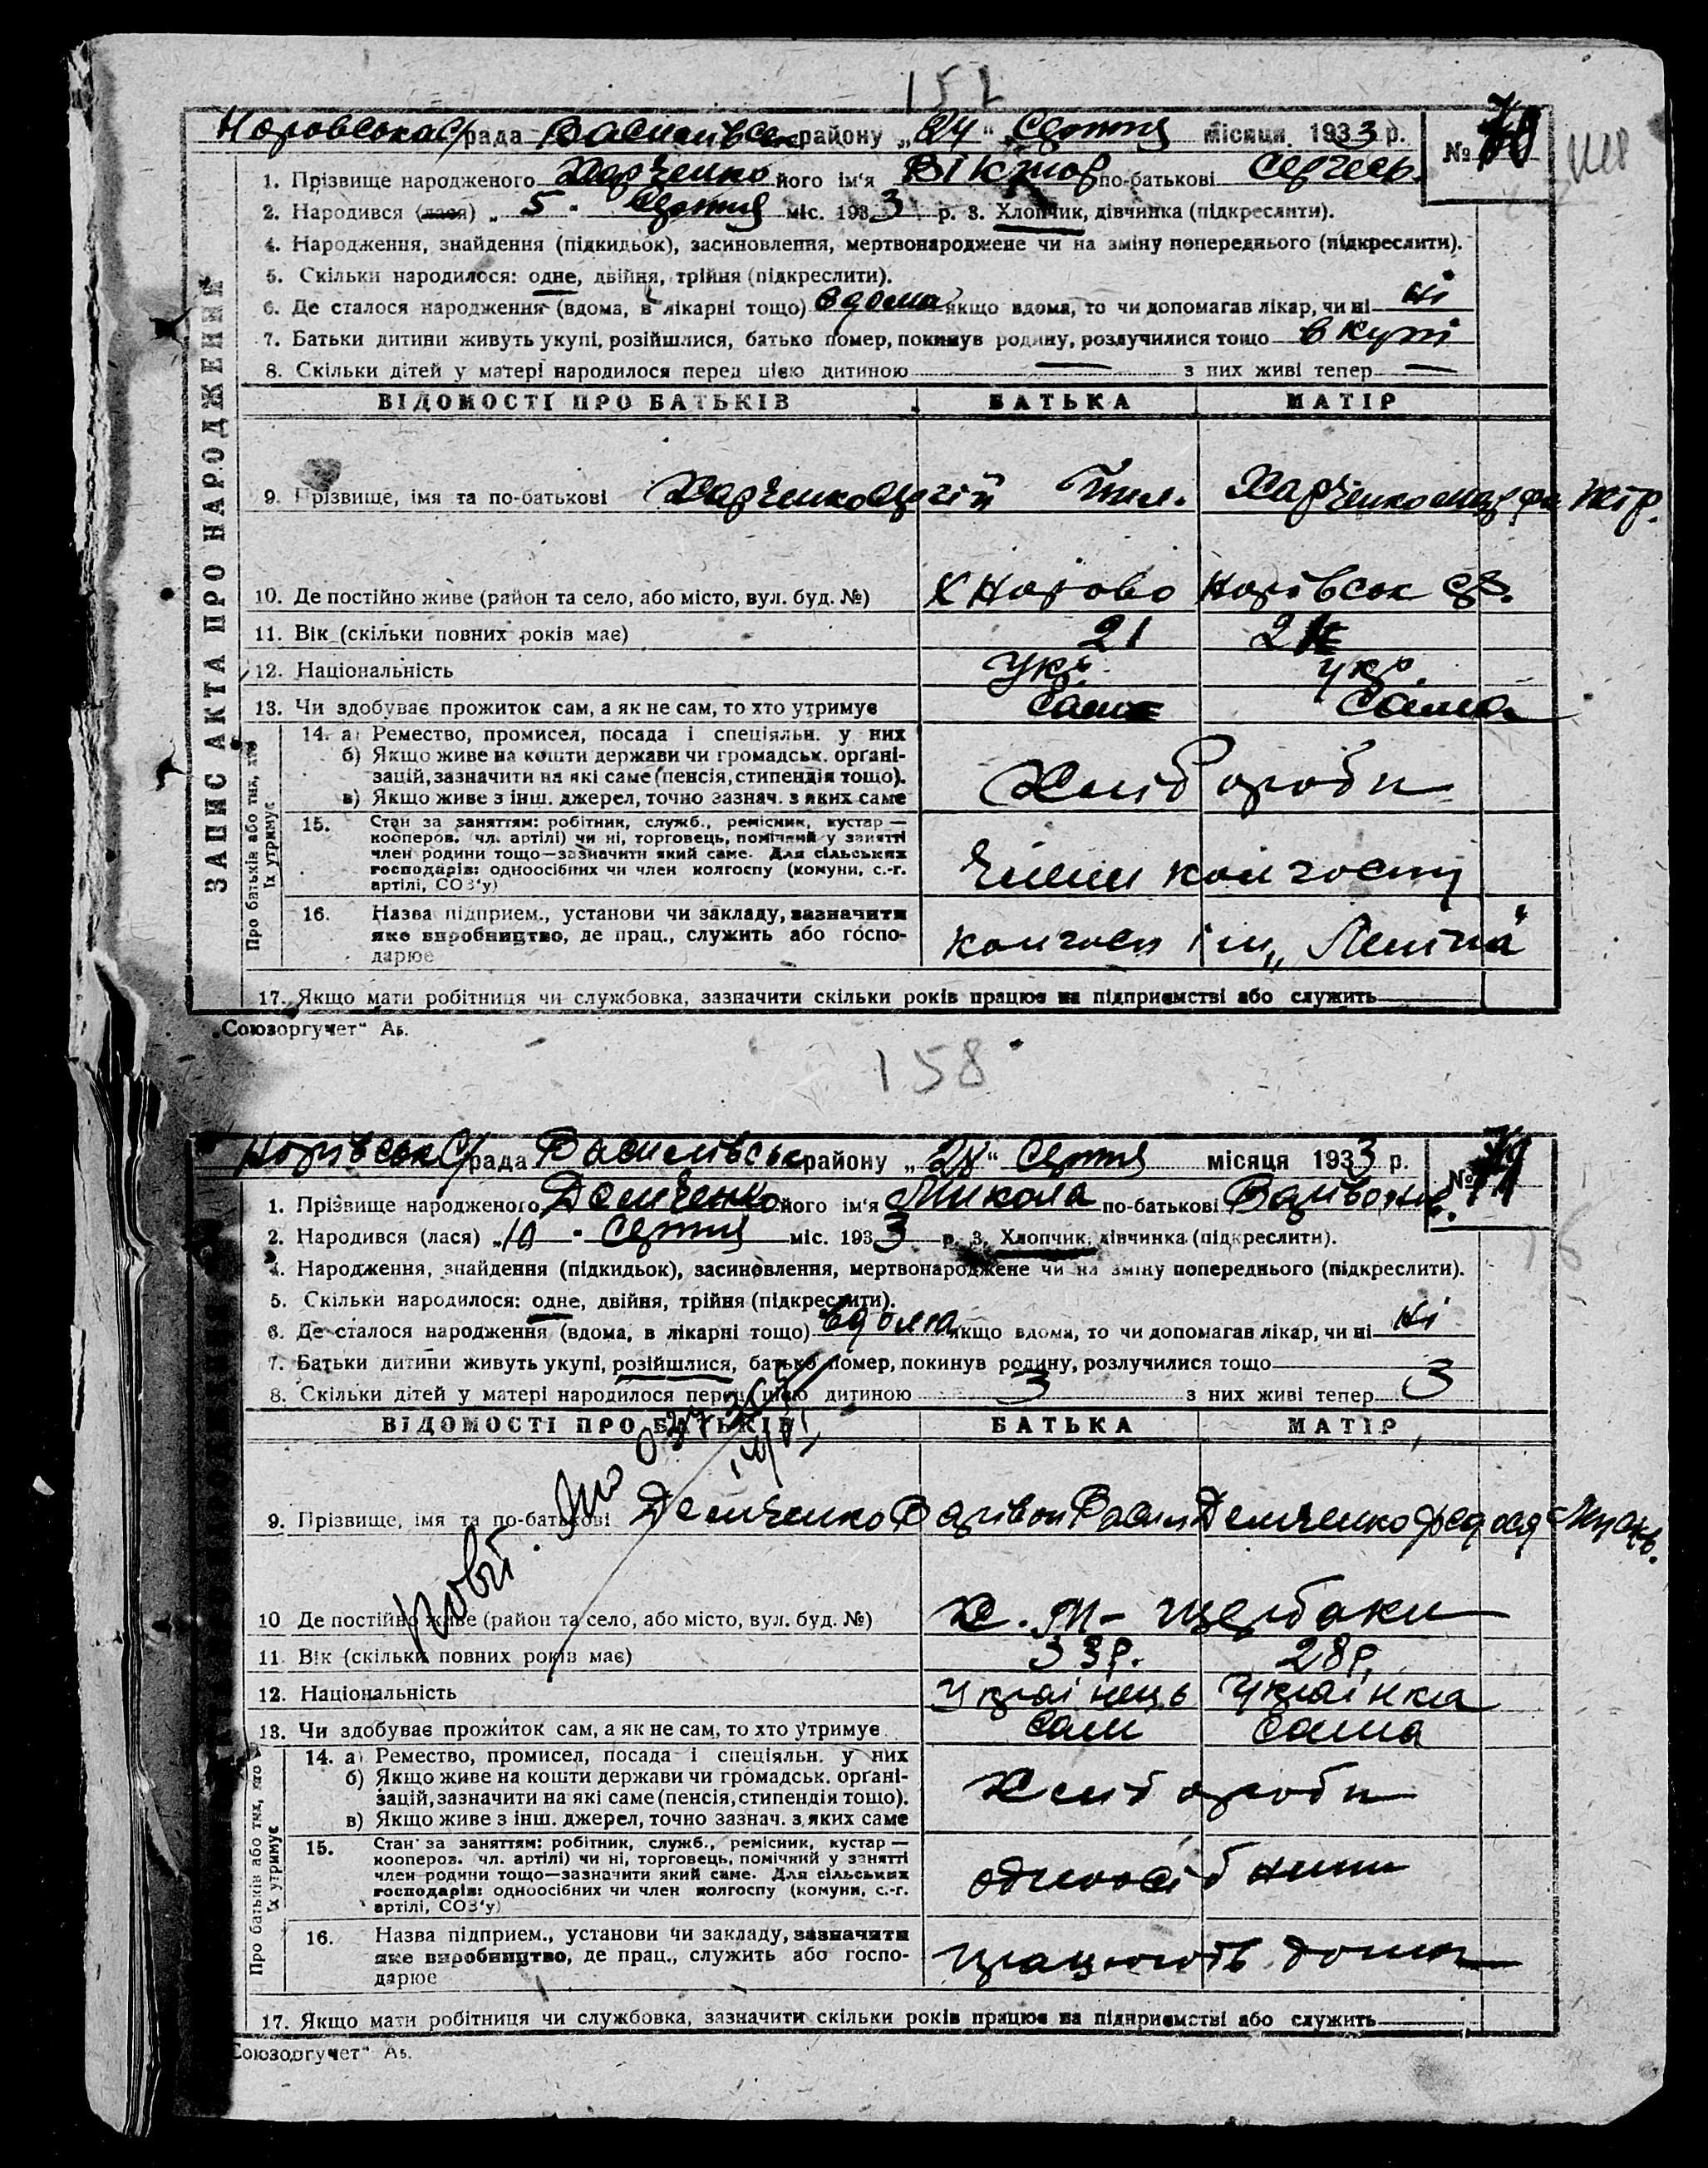 152
рада району „24“ Серпня місяця 1933 р. №
1. Прізвище народженого Харченко його ім'я Віктор по-батькові Сергеев.
2. Народився (лася) „ 5 “ Серпня міс. 1933 р. 3. Хлопчик, дівчинка (підкреслити).
4. Народження, знайдення (підкидьок), засиновлення, мертвонароджене чи на зміну попереднього (підкреслити).
5. Скільки народилося: одне, двійня, трійня (підкреслити).
6. Де сталося народження (вдома, в лікарні тощо) вдома якщо вдома, то чи допомагав лікар, чи ні ні
7. Батьки дитини живуть укупі, розійшлися, батько помер, покинув родину, розлучилися тощо вкупі
8. Скільки дітей у матері народилося перед цією дитиною — з них живі тепер —
ЗАПИС АКТА ПРО НАРОДЖЕННЯ
ВІДОМОСТІ ПРО БАТЬКІВ БАТЬКА МАТІР
9. Прізвище, імя та по-батькові Харченко Сергій Харченко
10. Де постійно живе (район та село, або місто, вул. буд. №)
11. Вік (скільки повних років має) 21
12. Національність укр. укр.
13. Чи здобуває прожиток сам, а як не сам, то хто утримує Сам Сама
Про батьків або тих, хто їх утримує
14. а) Ремество, промисел, посада і спеціяльн. у них
б) Якщо живе на кошти держави чи громадськ. органі-
зацій, зазначити на які саме (пенсія, стипендія тощо).
в) Якщо живе з інш. джерел, точно зазнач. з яких саме
Хлібороби
15. Стан за заняттям: робітник, служб., ремісник, кустар —
кооперов. чл. артілі) чи ні, торговець, помічний у занятті
член родини тощо—зазначити який саме. Для сільських
господарів: одноосібних чи член колгоспу (комуни, с.-г.
артілі, СОЗ'у)
Члени колгоспу
16. Назва підприєм., установи чи закладу, зазначити
яке виробництво, де прац., служить або госпо-
дарює
колгосп ім „Леніна“
17. Якщо мати робітниця чи службовка, зазначити скільки років працює на підприємстві або служить
„Союзоргучет“ Аь.
158
рада Василівськ району „28“ Серпня місяця 1933 р. №
1. Прізвище народженого Демченко його ім'я Микола по-батькові
2. Народився (лася) „ 10 “ Серпня міс. 1933 р. 3. Хлопчик, дівчинка (підкреслити).
4. Народження, знайдення (підкидьок), засиновлення, мертвонароджене чи на зміну попереднього (підкреслити).
5. Скільки народилося: одне, двійня, трійня (підкреслити).
6. Де сталося народження (вдома, в лікарні тощо) вдома якщо вдома, то чи допомагав лікар, чи ні ні
7. Батьки дитини живуть укупі, розійшлися, батько помер, покинув родину, розлучилися тощо
8. Скільки дітей у матері народилося перед цією дитиною 3 з них живі тепер 3
ВІДОМОСТІ ПРО БАТЬКІВ БАТЬКА МАТІР
9. Прізвище, імя та по-батькові Демченко Демченко Федося
10 Де постійно живе (район та село, або місто, вул. буд. №) Щербаки
11. Вік (скільки повних років має) 33р. 28р.
12. Національність Українець Українка
13. Чи здобуває прожиток сам, а як не сам, то хто утримує Сам Сама
Про батьків або тих, хто їх утримує
14. а) Ремество, промисел, посада і спеціяльн. у них
б) Якщо живе на кошти держави чи громадськ. органі-
зацій, зазначити на які саме (пенсія, стипендія тощо).
в) Якщо живе з інш. джерел, точно зазнач. з яких саме
Хлібороби
15. Стан за заняттям: робітник, служб., ремісник, кустар —
кооперов. чл. артілі) чи ні, торговець, помічний у занятті
член родини тощо—зазначити який саме. Для сільських
господарів: одноосібних чи член колгоспу (комуни, с.-г.
артілі, СОЗ'у)
одноосібники
16. Назва підприєм., установи чи закладу, зазначити
яке виробництво, де прац., служить або госпо-
дарює
працюють дома
17. Якщо мати робітниця чи службовка, зазначити скільки років працює на підприємстві або служить
Союзоргучет“ Аь.